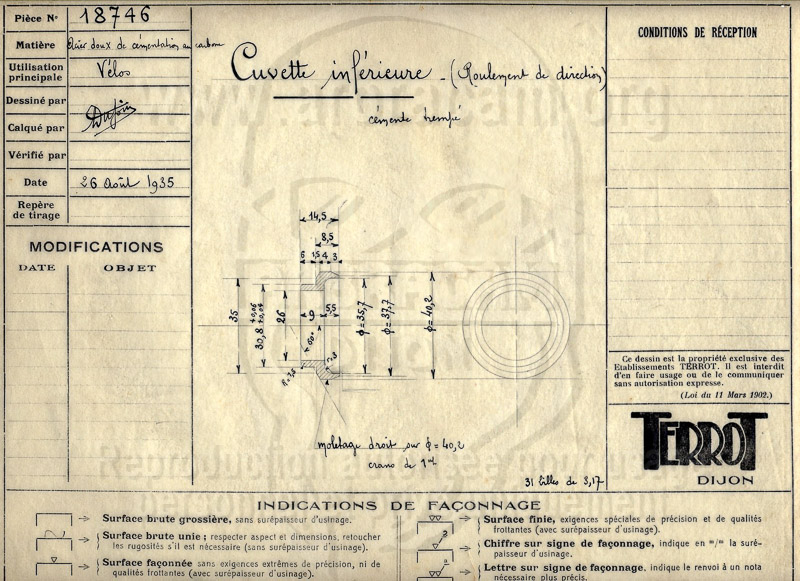 Pièce N° 18746
Matière Acier doux de cémentation au carbone
Utilisation principale Vélos
Dessiné par
Calqué par
Vérifié par
Date 26 Août 1935
Repère de tirage
MODIFICATIONS
DATE OBJET
Cuvette inférieure - (Roulement de direction)
cémenté trempé
14,5
8,5
6 1,5 4 3
35
30,8 +0,06 +0,04
26
9
5,5
60°
ϕ=35,7
ϕ=37,7
ϕ=40,2
moletage droit sur ϕ=40,2
crans de 1
31 billes de 3,17
CONDITIONS DE RÉCEPTION
Ce dessin est la propriété exclusive des
Etablissements TERROT. Il est interdit
d'en faire usage ou de le communiquer
sans autorisation expresse.
(Loi du 11 Mars 1902.)
TERROT
DIJON
INDICATIONS DE FAÇONNAGE
Surface brute grossière, sans surépaisseur d'usinage.
Surface brute unie ; respecter aspect et dimensions, retoucher
les rugosités s'il est nécessaire (sans surépaisseur d'usinage).
Surface façonnée sans exigences extrêmes de précision, ni de
qualités frottantes (avec surépaisseur d'usinage).
Surface finie, exigences spéciales de précision et de qualités
frottantes (avec surépaisseur d'usinage).
3
Chiffre sur signe de façonnage, indique en m/m la suré-
paisseur d'usinage.
a
Lettre sur signe de façonnage, indique le renvoi à un nota
nécessaire plus précis.